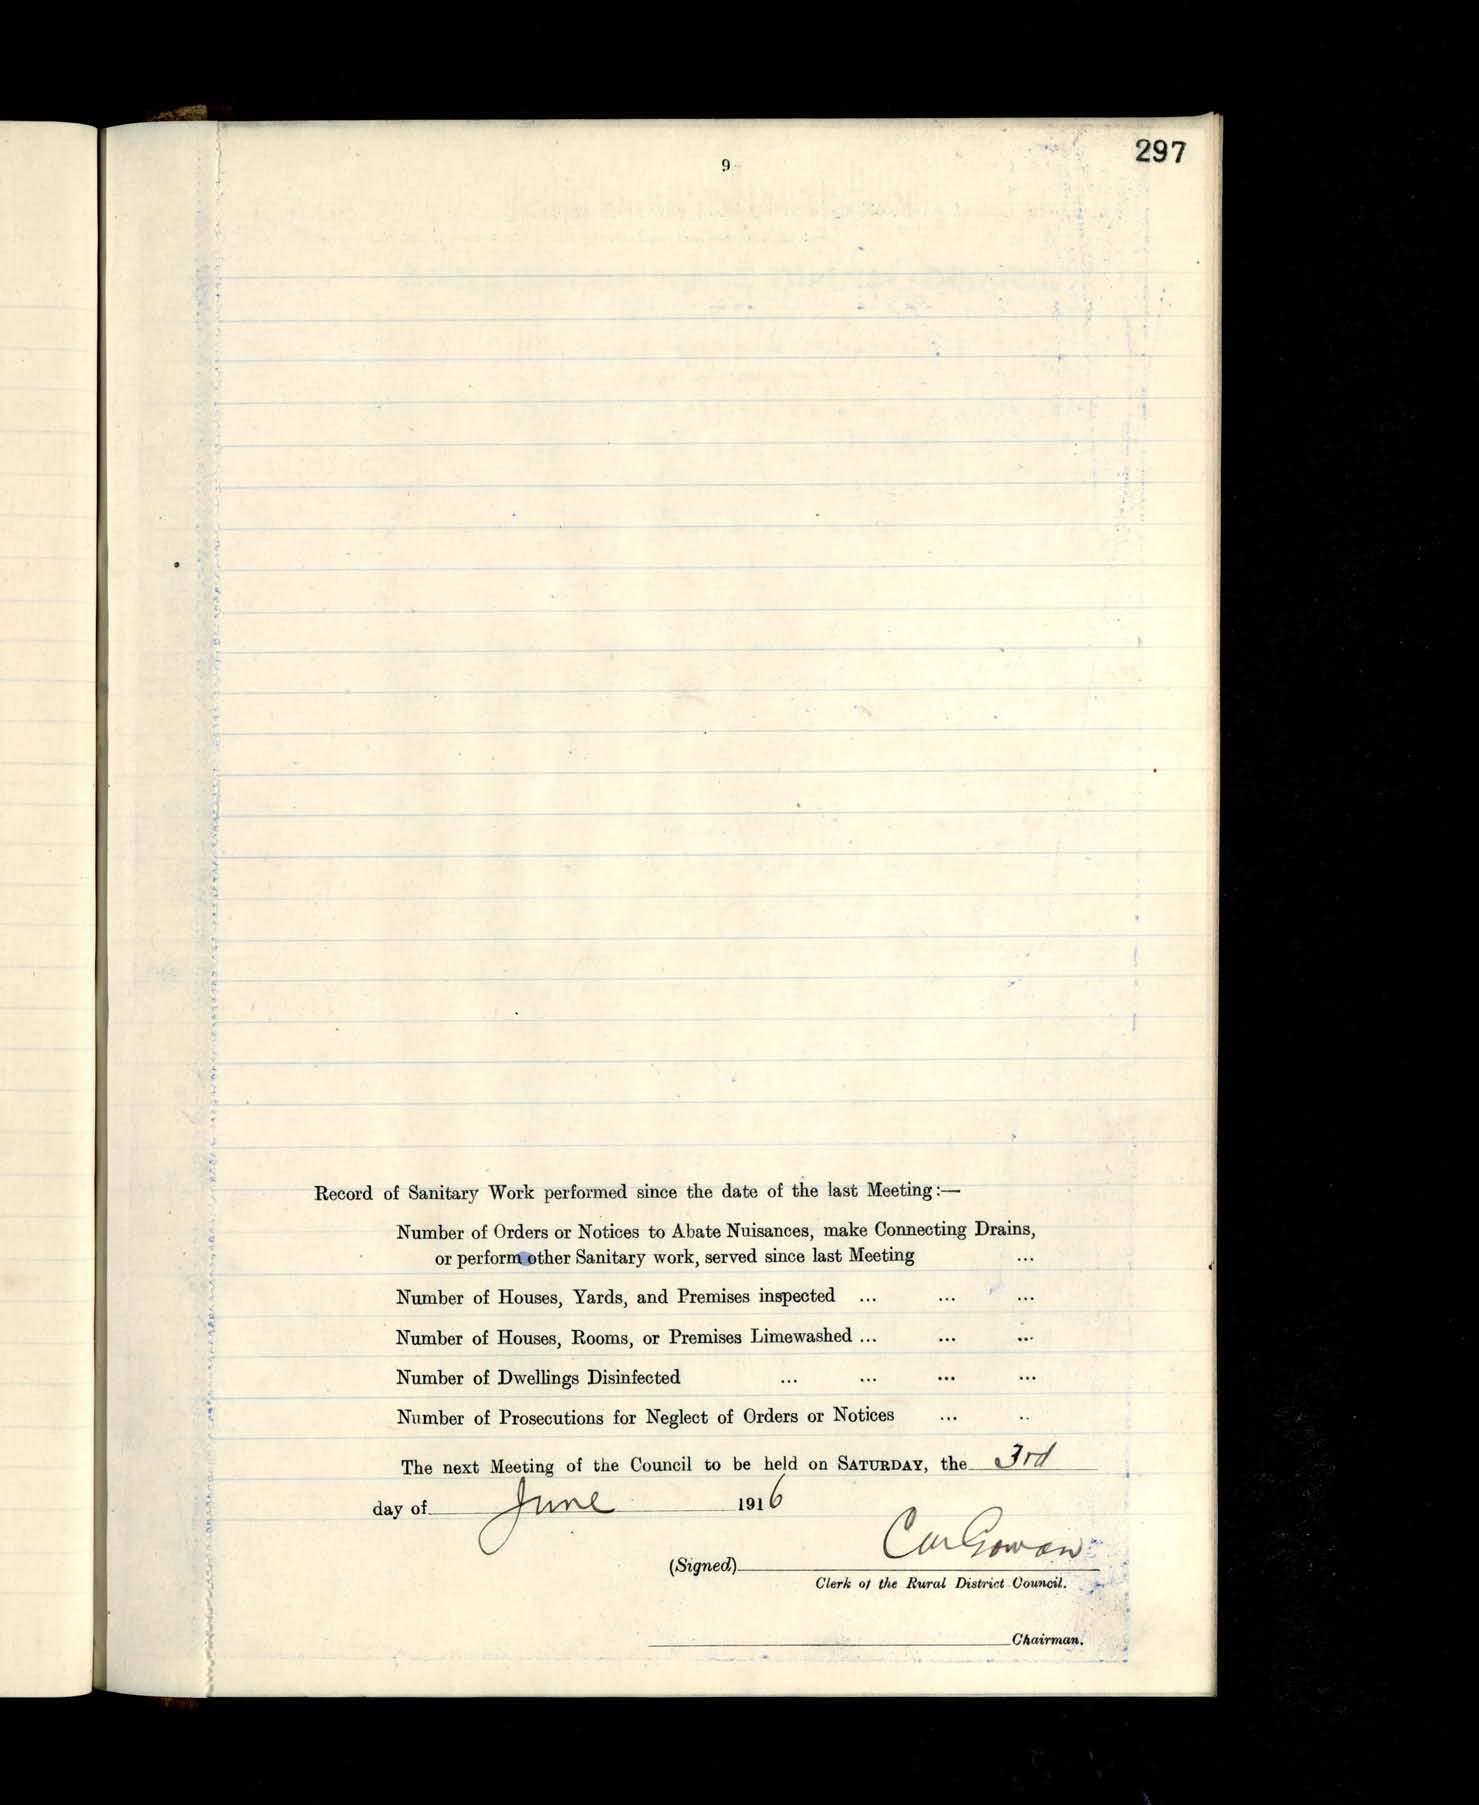 297
9
Record of Sanitary Work performed since the date of the last Meeting:—
Number of Orders or Notices to Abate Nuisances, make Connecting Drains,
or perform other Sanitary work, served since last Meeting ...
Number of Houses, Yards, and Premises inspected ... ... ...
Number of Houses, Rooms, or Premises Limewashed ... ... ...
Number of Dwellings Disinfected ... ... ... ...
Number of Prosecutions for Neglect of Orders or Notices ... ..
The next Meeting of the Council to be held on SATURDAY, the 3rd
day of June 1916
(Signed) Gowan
Clerk of the Rural District Council.
Chairman.